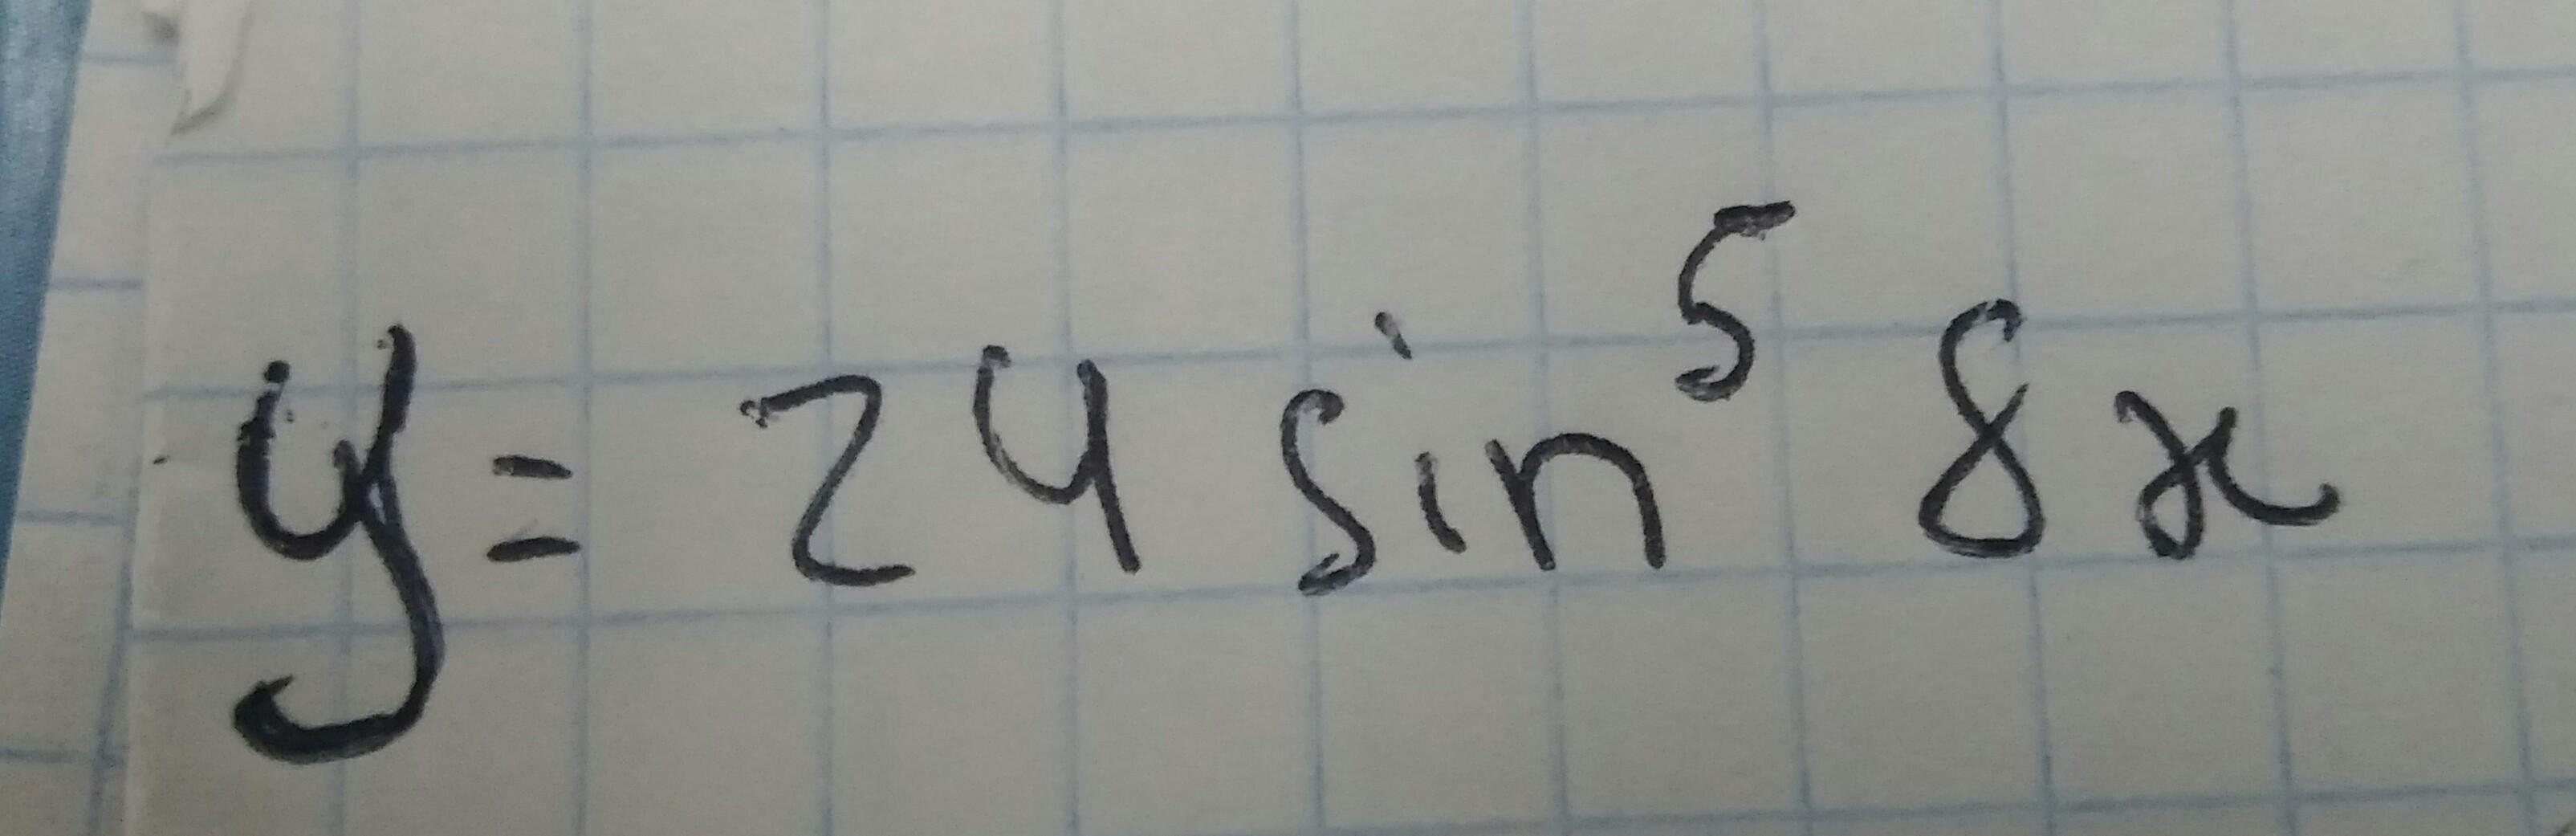 y = 24 sin⁵ 8x